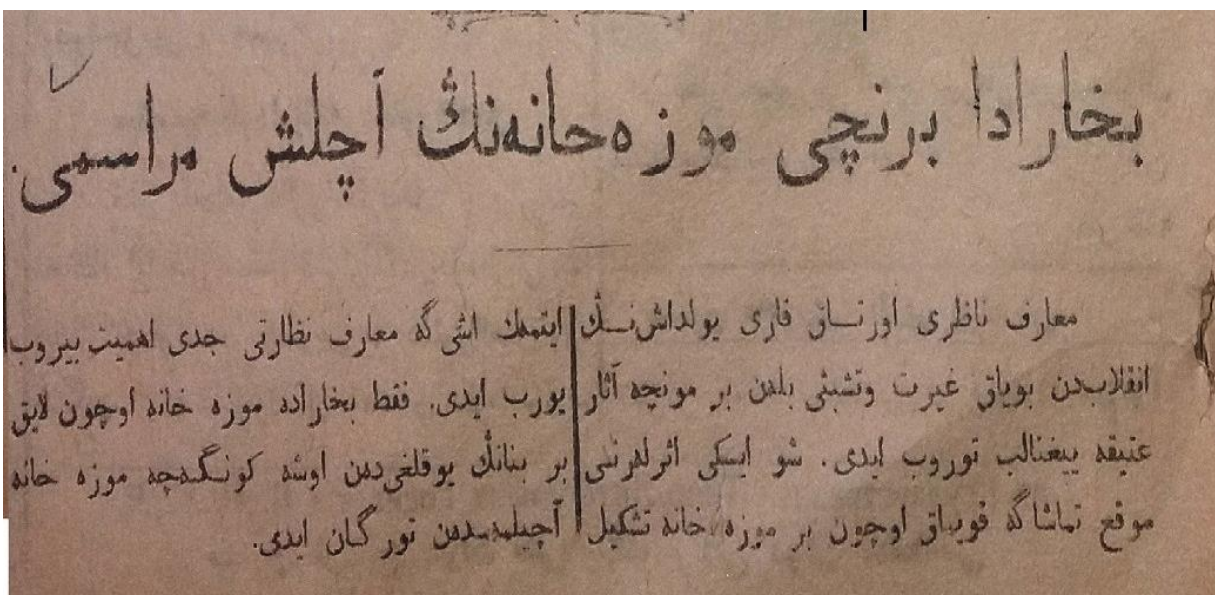 بخارادا برنچی موزه‌حانه‌نڭ آچلش مراسمی.
معارف ناظری اورتــاق قاری یولداش‌نــڭ
انقلاب‌دن بویاق غیرت وتشبثی بلەن بر مونچه آثار
عتیقه ییغنالب توروب ایدی. شو ایسکی اثرلەرنی
موقع تماشاگه قویماق اوچون بر موزه خانه تشکیل
ایتمەك اشی‌گه معارف نظارتی جدی اهمیت بیروب
یورب ایدی. فقط بخاراده موزه خانه اوچون لایق
بر بنانڭ یوقلغی‌دەن اوشه کونــگـه‌چه موزه خانه
آچیلمەسدەن تورگان ایدی.